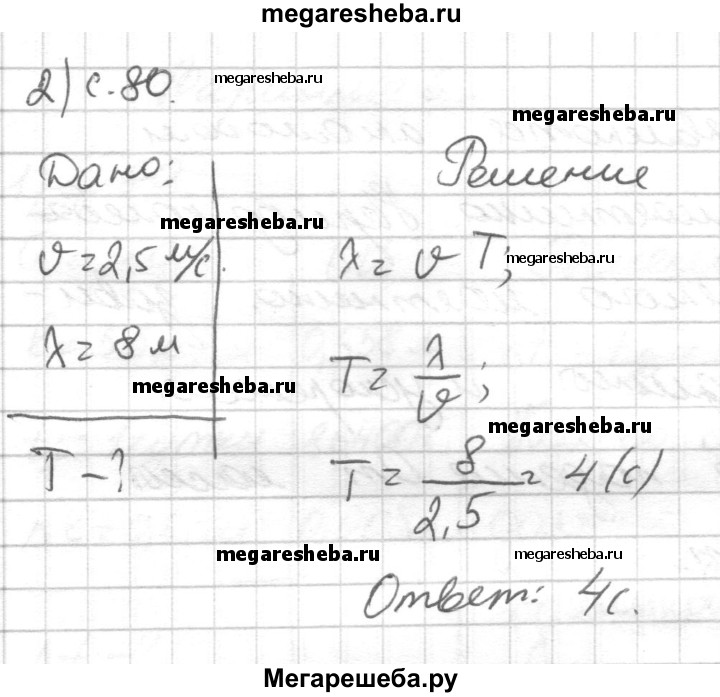 megaresheba.ru
2) с. 80. megaresheba.ru
megaresheba.ru
Дано: Решение
megaresheba.ru
υ = 2,5 м/с. λ = υ T; megaresheba.ru
λ = 8 м T = λ/υ;
megaresheba.ru
megaresheba.ru
T - ? T = 8/2,5 = 4 (с)
megaresheba.ru megaresheba.ru
Ответ: 4с.
Мегарешеба.ру